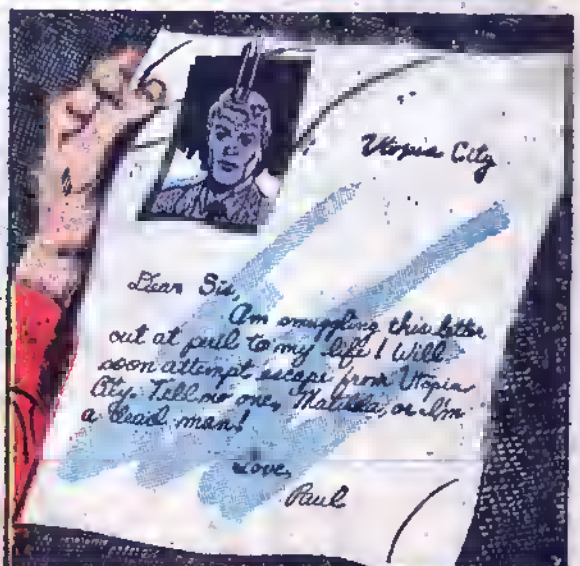 Utopia City
Dear Sis,
Am smuggling this letter
out at peril to my life! Will
soon attempt escape from Utopia
City. Tell no one, Matilda, or I'm
a dead man!
Love,
Paul